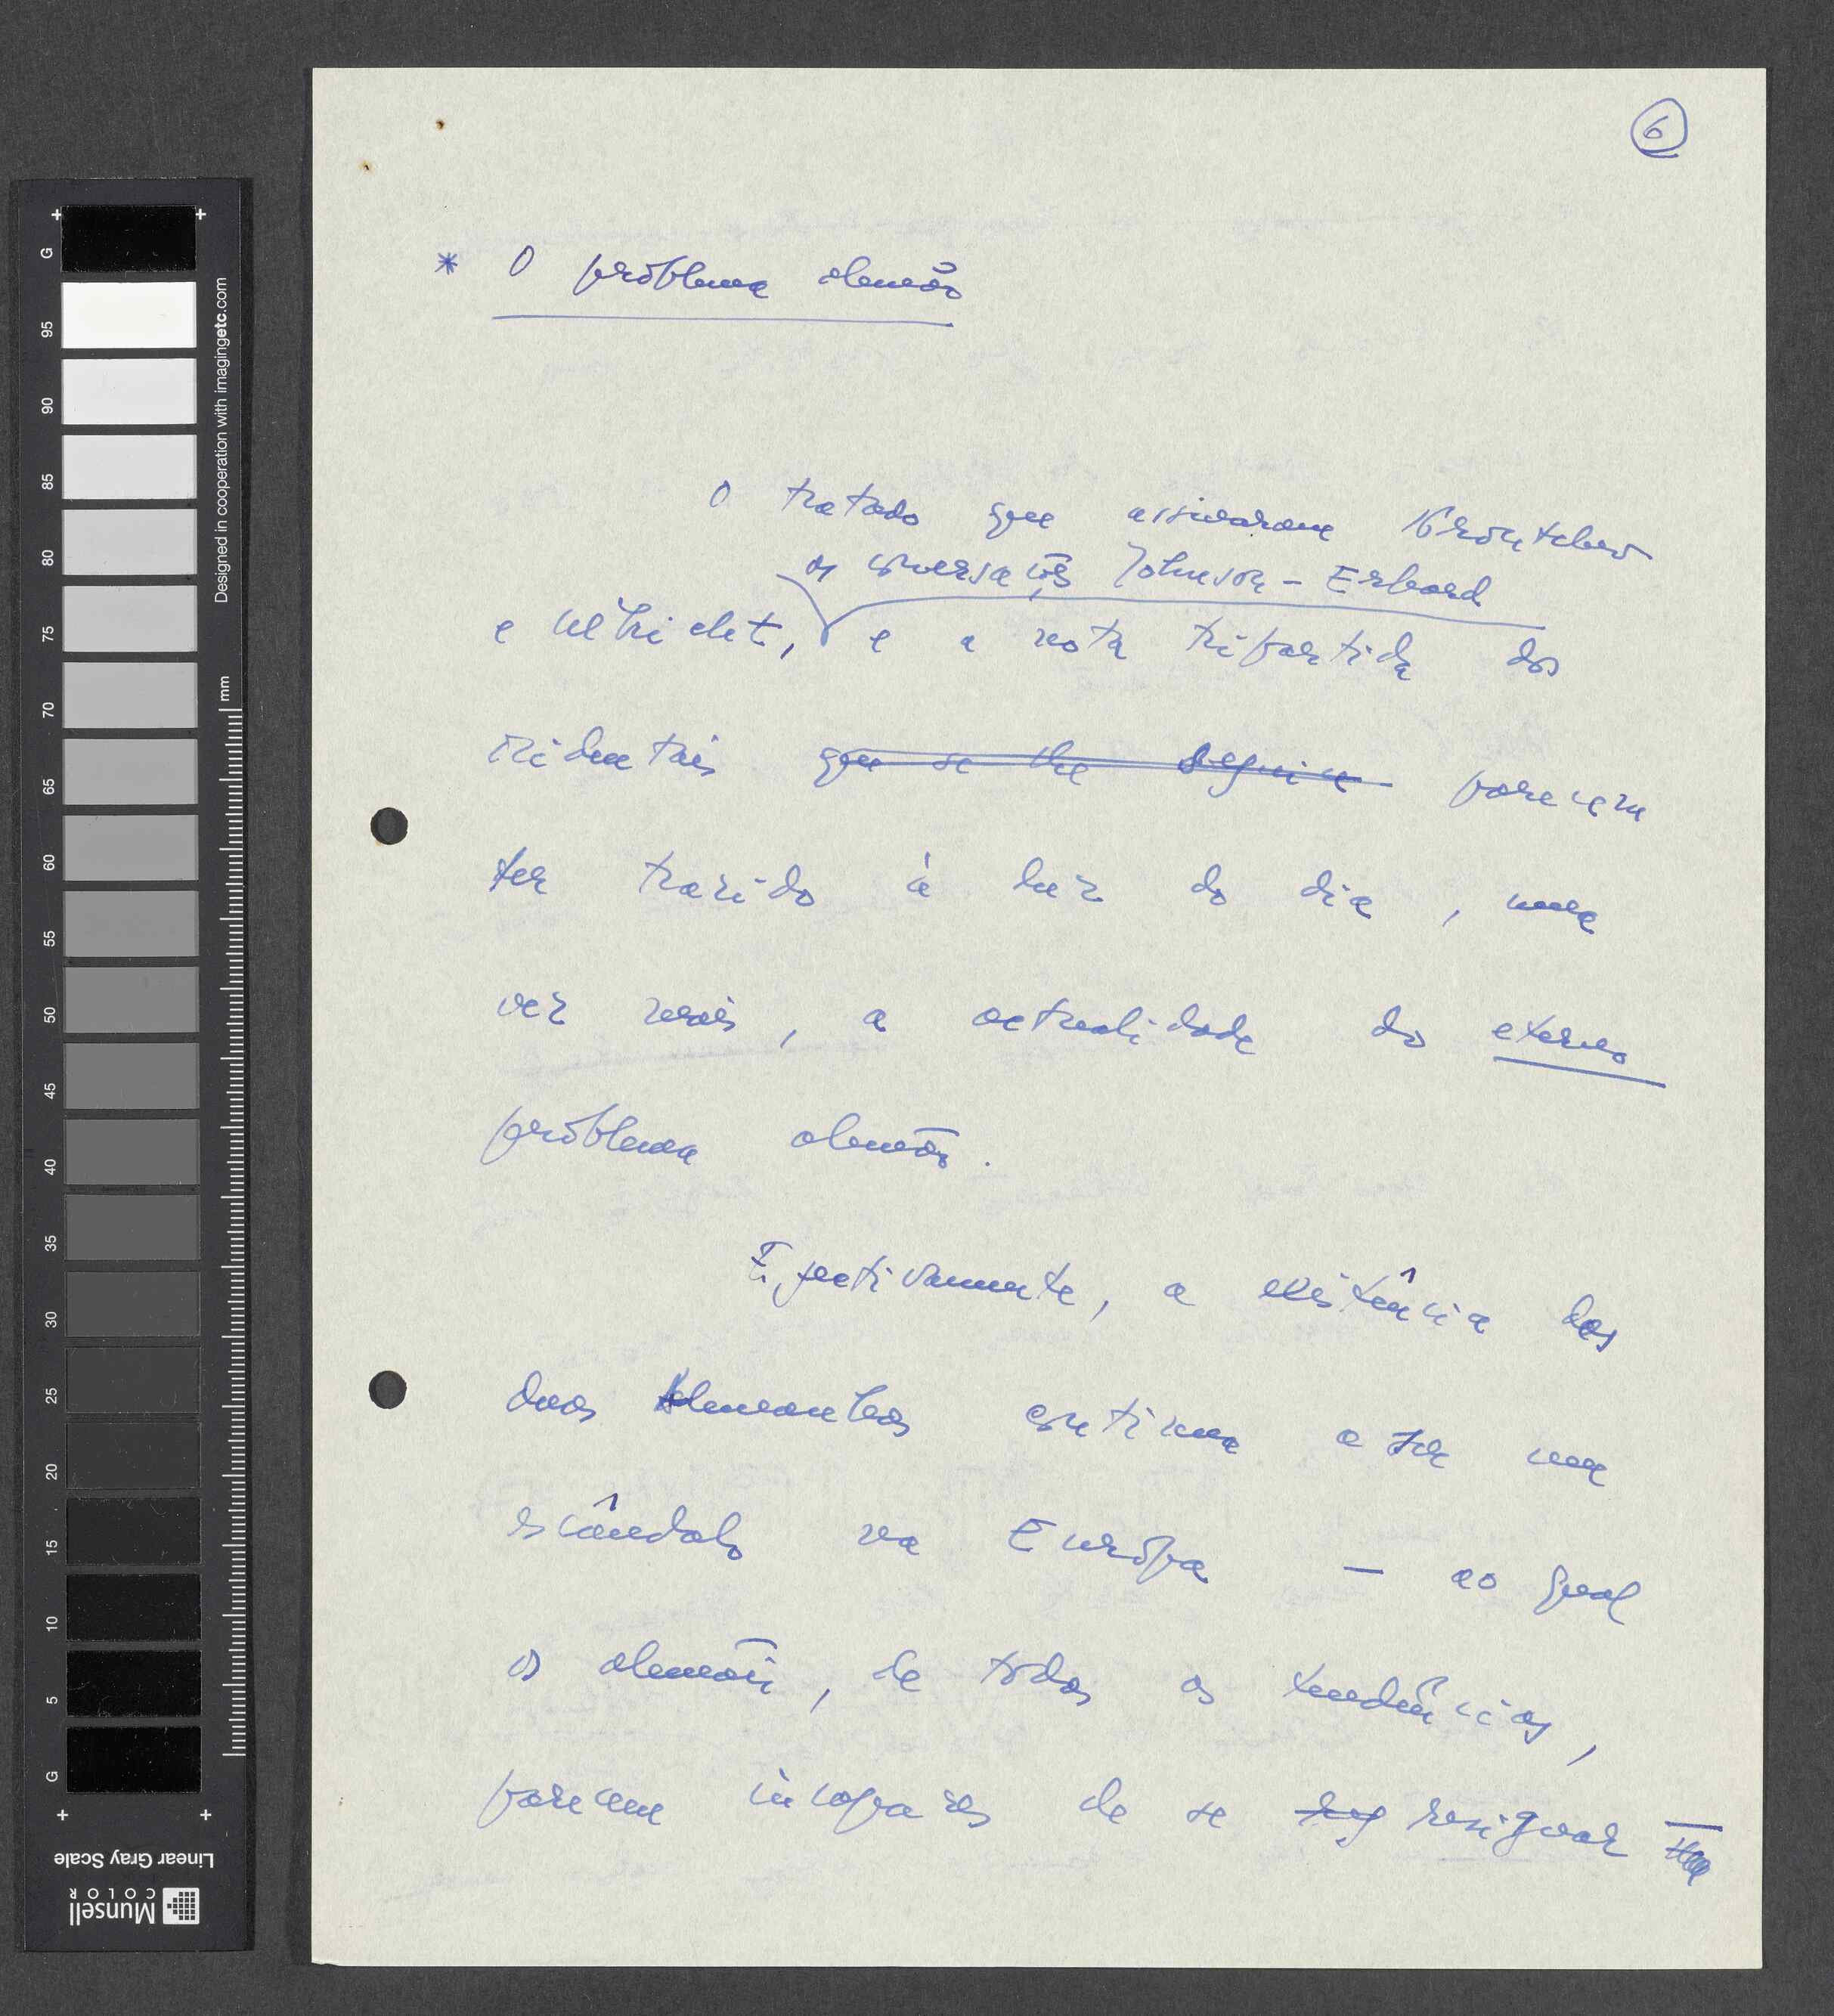 6
* O problema alemão
O tratado que assinaram Kroutchev
as conversações Johnson - Erhard
e Ulbricht, e a nota tripartida dos
ocidentais que se lhe seguiu parecem
ter trazido à luz do dia, uma
vez mais, a actualidade do eterno
problema alemão.
Efectivamente, a existência das
duas Alemanhas continua a ser um
escândalo na Europa — ao qual
os alemães, de todas as tendências,
parecem incapazes de se resignar —
G
95
90
85
80
75
70
65
60
55
50
45
40
35
30
25
20
15
10
5
G
mm
Designed in cooperation with imagingetc.com
Linear Gray Scale
Munsell
COLOR